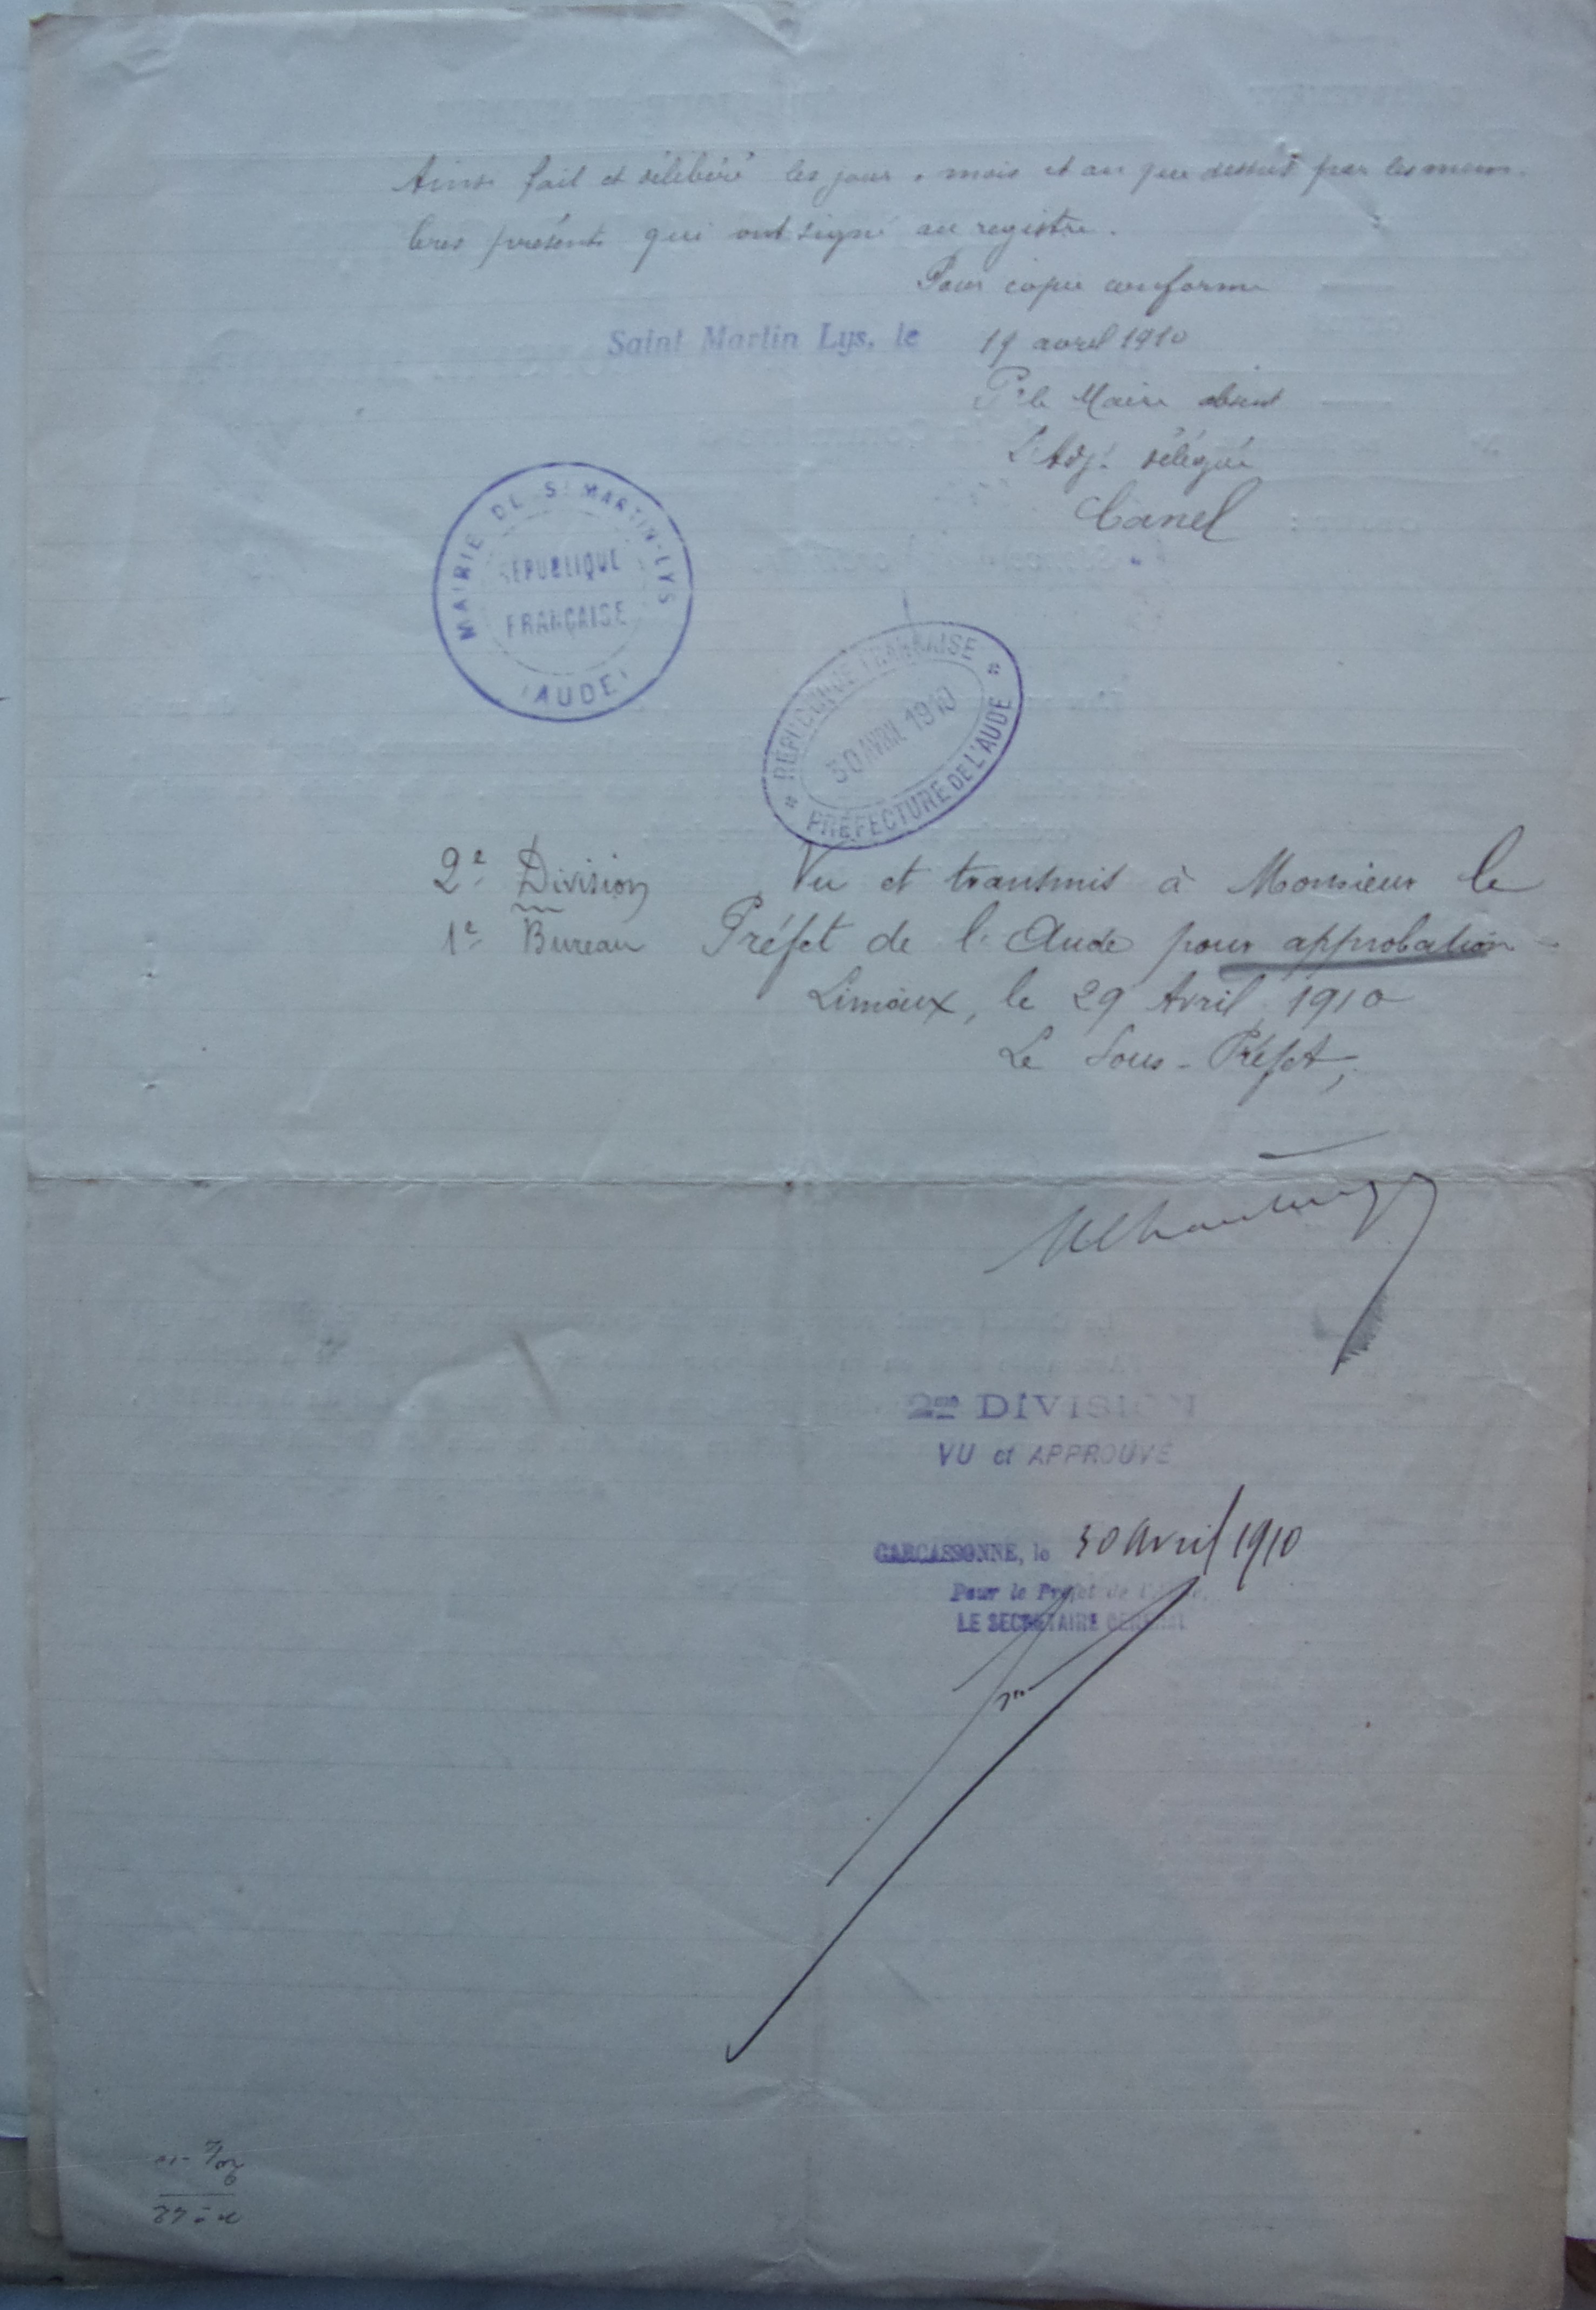 Ainsi fait et délibéré les jour, mois et an que dessus par les mem-
bres présents qui ont signé au registre.
Pour copie conforme
Saint Martin Lys, le 19 avril 1910
Pr le Maire absent
L'Adjt délégué
Canel
MAIRIE DE St MARTIN-LYS
RÉPUBLIQUE
FRANÇAISE
(AUDE)
RÉPUBLIQUE FRANÇAISE
30 AVRIL 1910
PRÉFECTURE DE L'AUDE
2e Division
1e Bureau
Vu et transmis à Monsieur le
Préfet de l'Aude pour approbation
Limoux, le 29 Avril 1910
Le Sous-Préfet,
2me DIVISION
VU et APPROUVÉ
CARCASSONNE, le 30 avril 1910
Pour le Préfet de l'Aude,
LE SECRÉTAIRE GÉNÉRAL